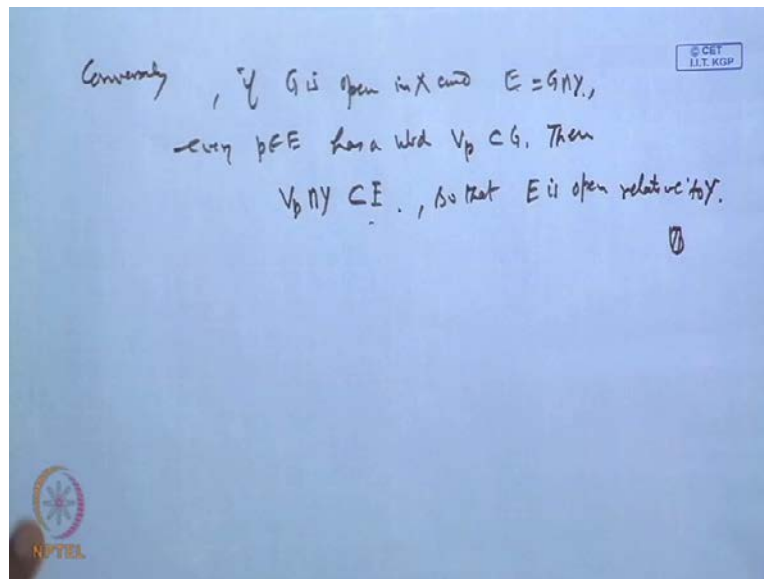 © CET
I.I.T. KGP
Conversely, if G is open in X and E = G∩Y,
every p∈E has a nbd Vp ⊂ G. Then
Vp ∩Y ⊂ E., so that E is open relative to Y.
NPTEL